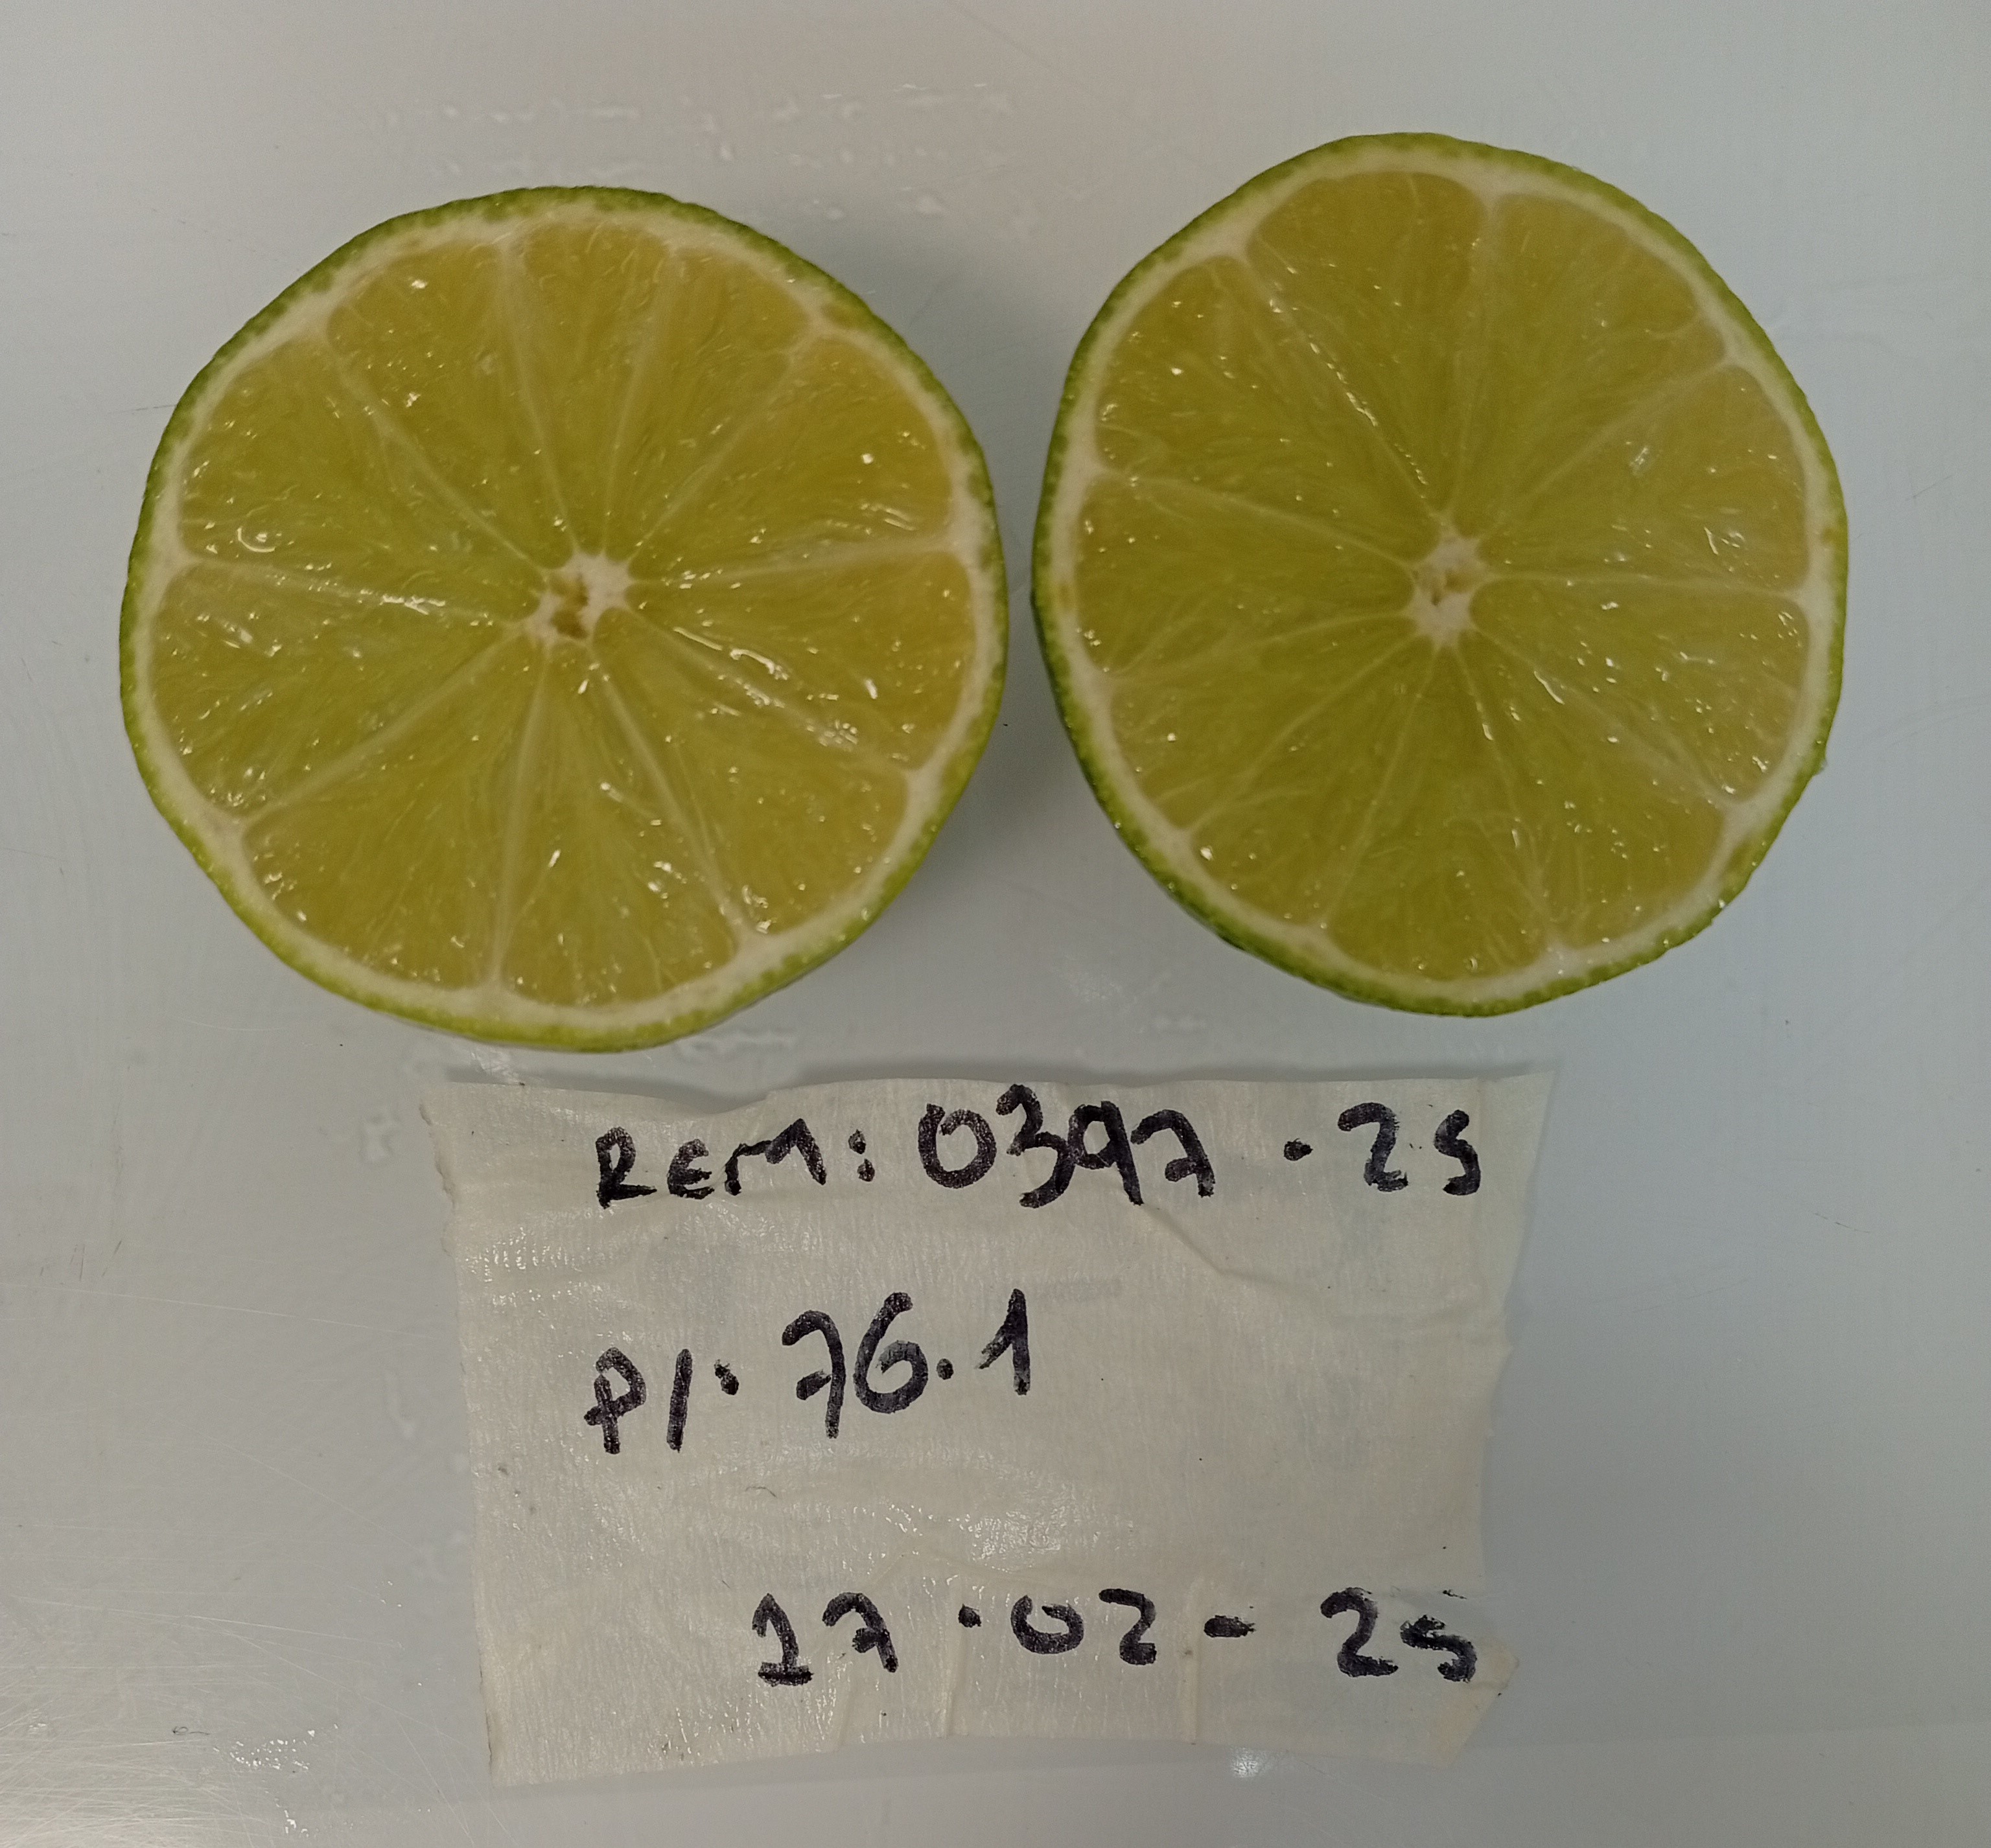 REM: 0397 . 25
P/: 76.1
17.02-25